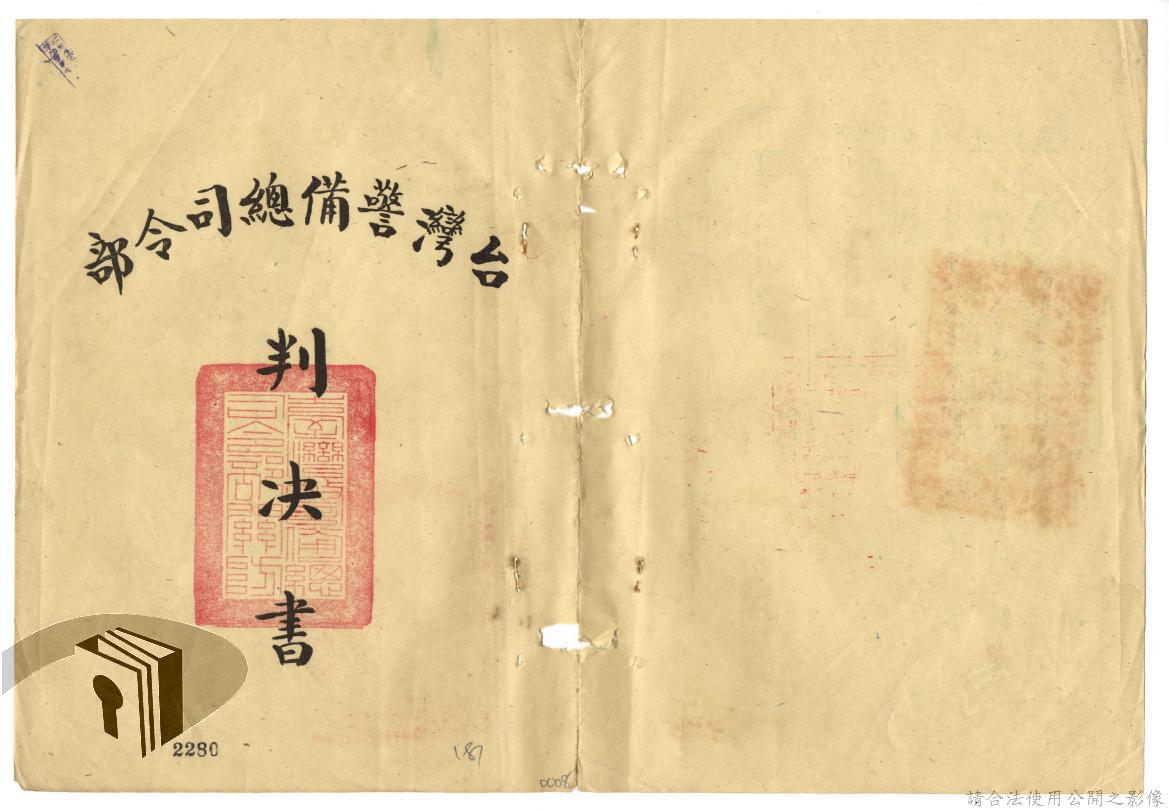 台灣警備總司令部
判決書
2280
187
0008
請合法使用公開之影像